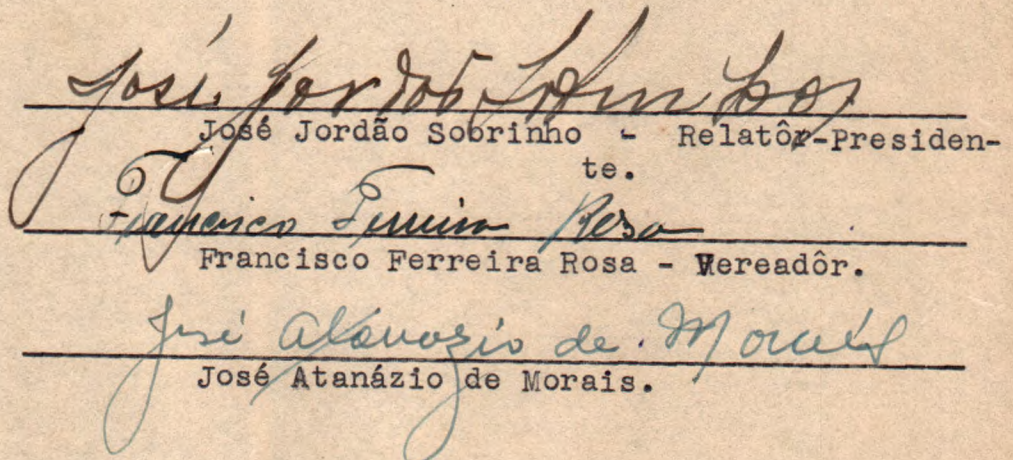 José Jordão Sobrinho
José Jordão Sobrinho - Relatôr-Presiden-
te.
Francisco Ferreira Rosa
Francisco Ferreira Rosa - Vereadôr.
José Atanazio de Morais
José Atanázio de Morais.